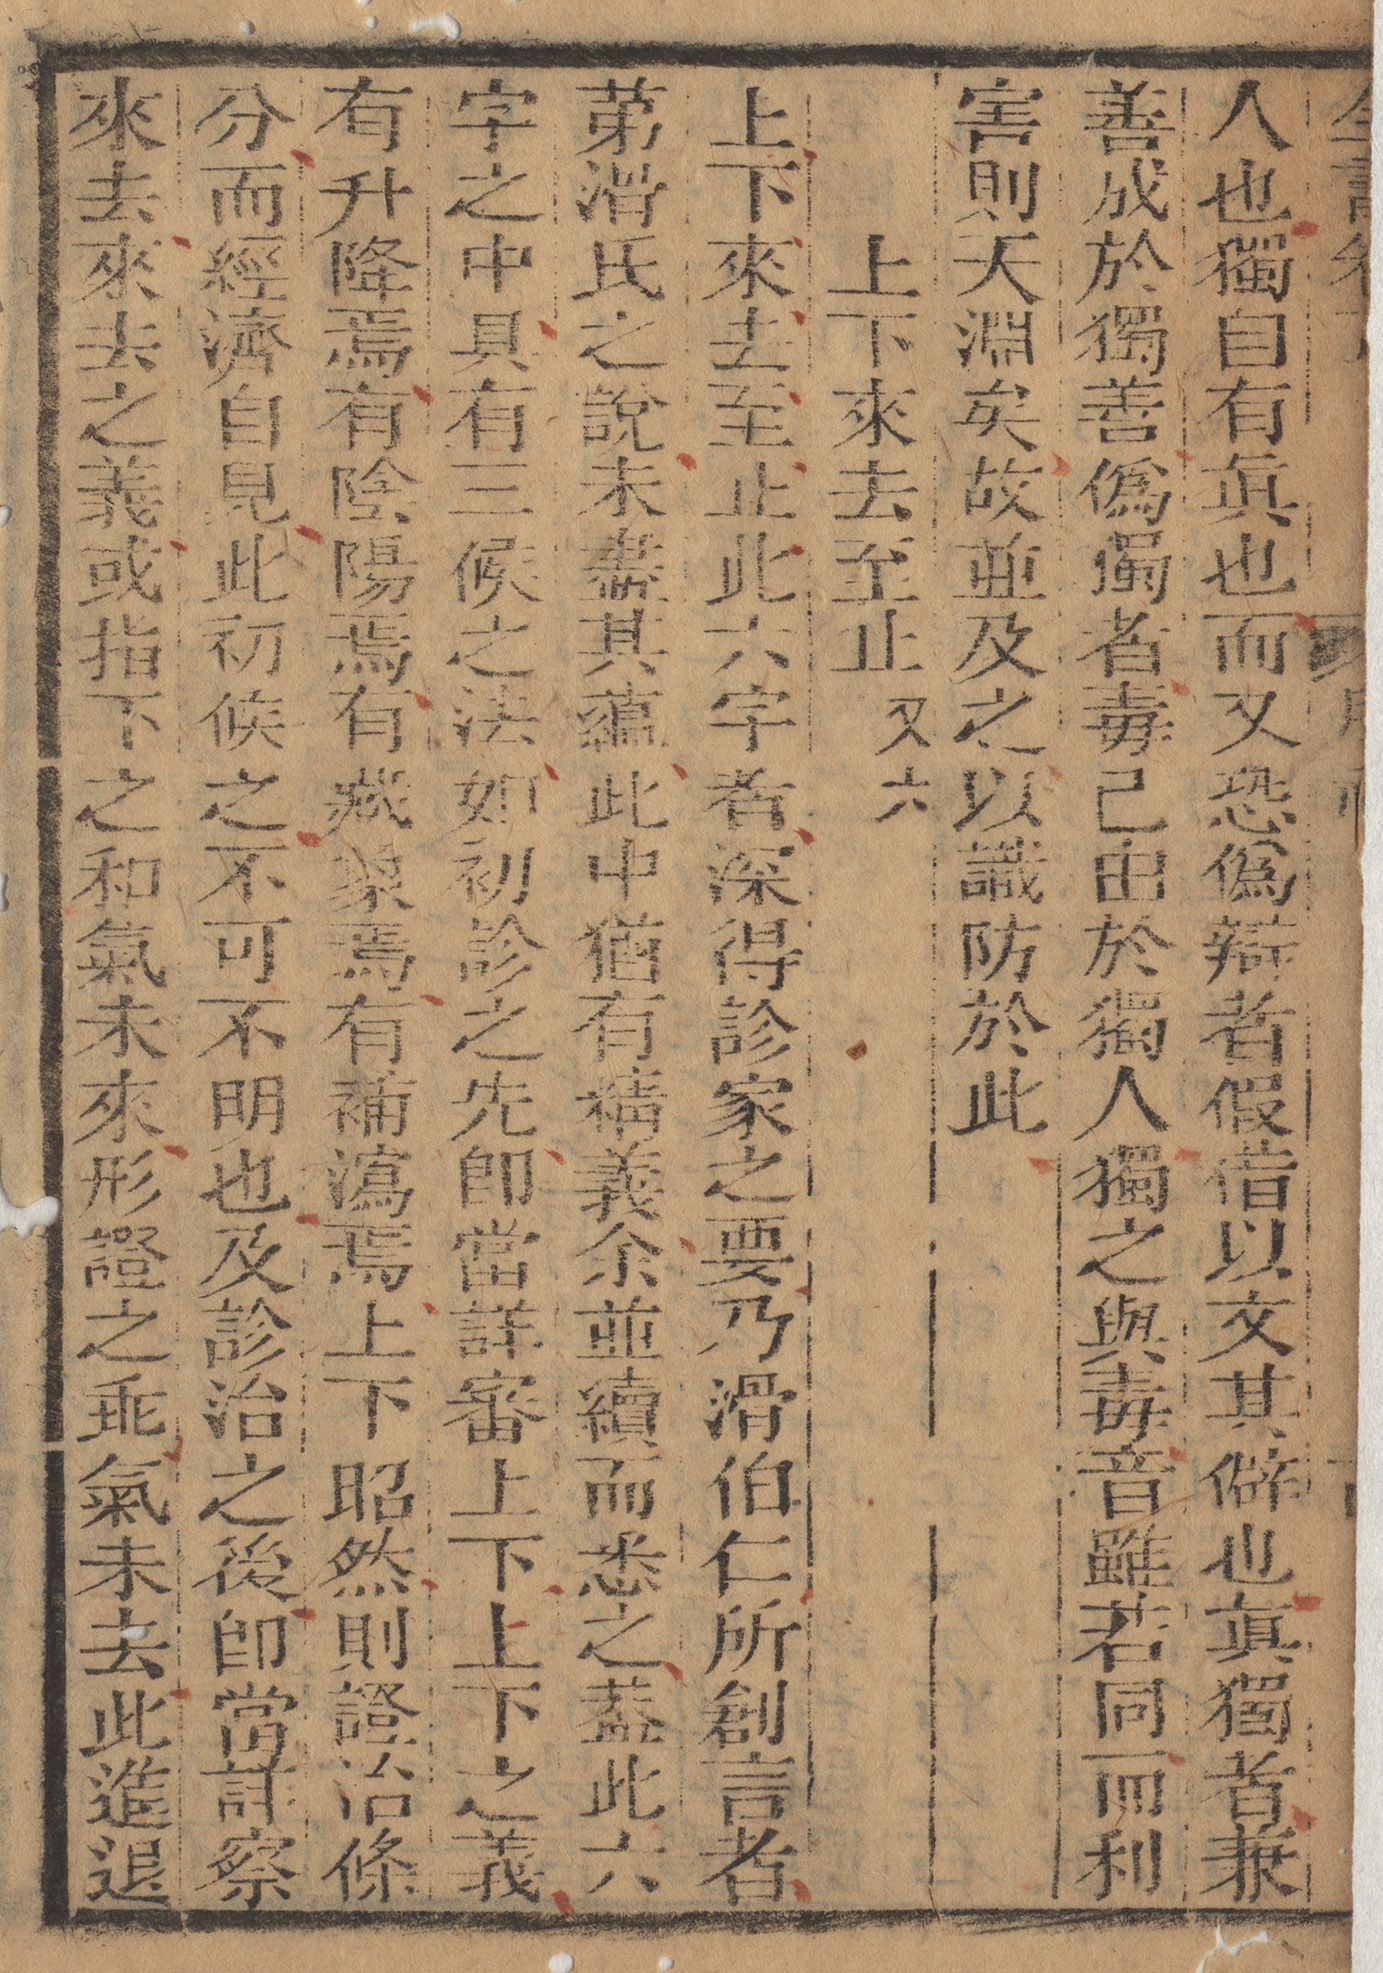 人也獨自有眞也而又恐僞辯者假借以文其僻也眞獨者兼
善成於獨善僞獨者毒己由於獨人獨之與毒音雖若同而利
害則天淵矣故並及之以識防於此
上下來去至止 又六
上下來去至止此六字者深得診家之要乃滑伯仁所創言者
苐滑氏之說未盡其蘊此中猶有精義余並續而悉之葢此六
字之中具有三候之法如初診之先即當詳審上下上下之義
有升降焉有陰陽焉有藏象焉有補瀉焉上下昭然則證治條
分而經濟自見此初候之不可不明也及診治之後即當詳察
來去來去之義或指下之和氣未來形證之乖氣未去此進退